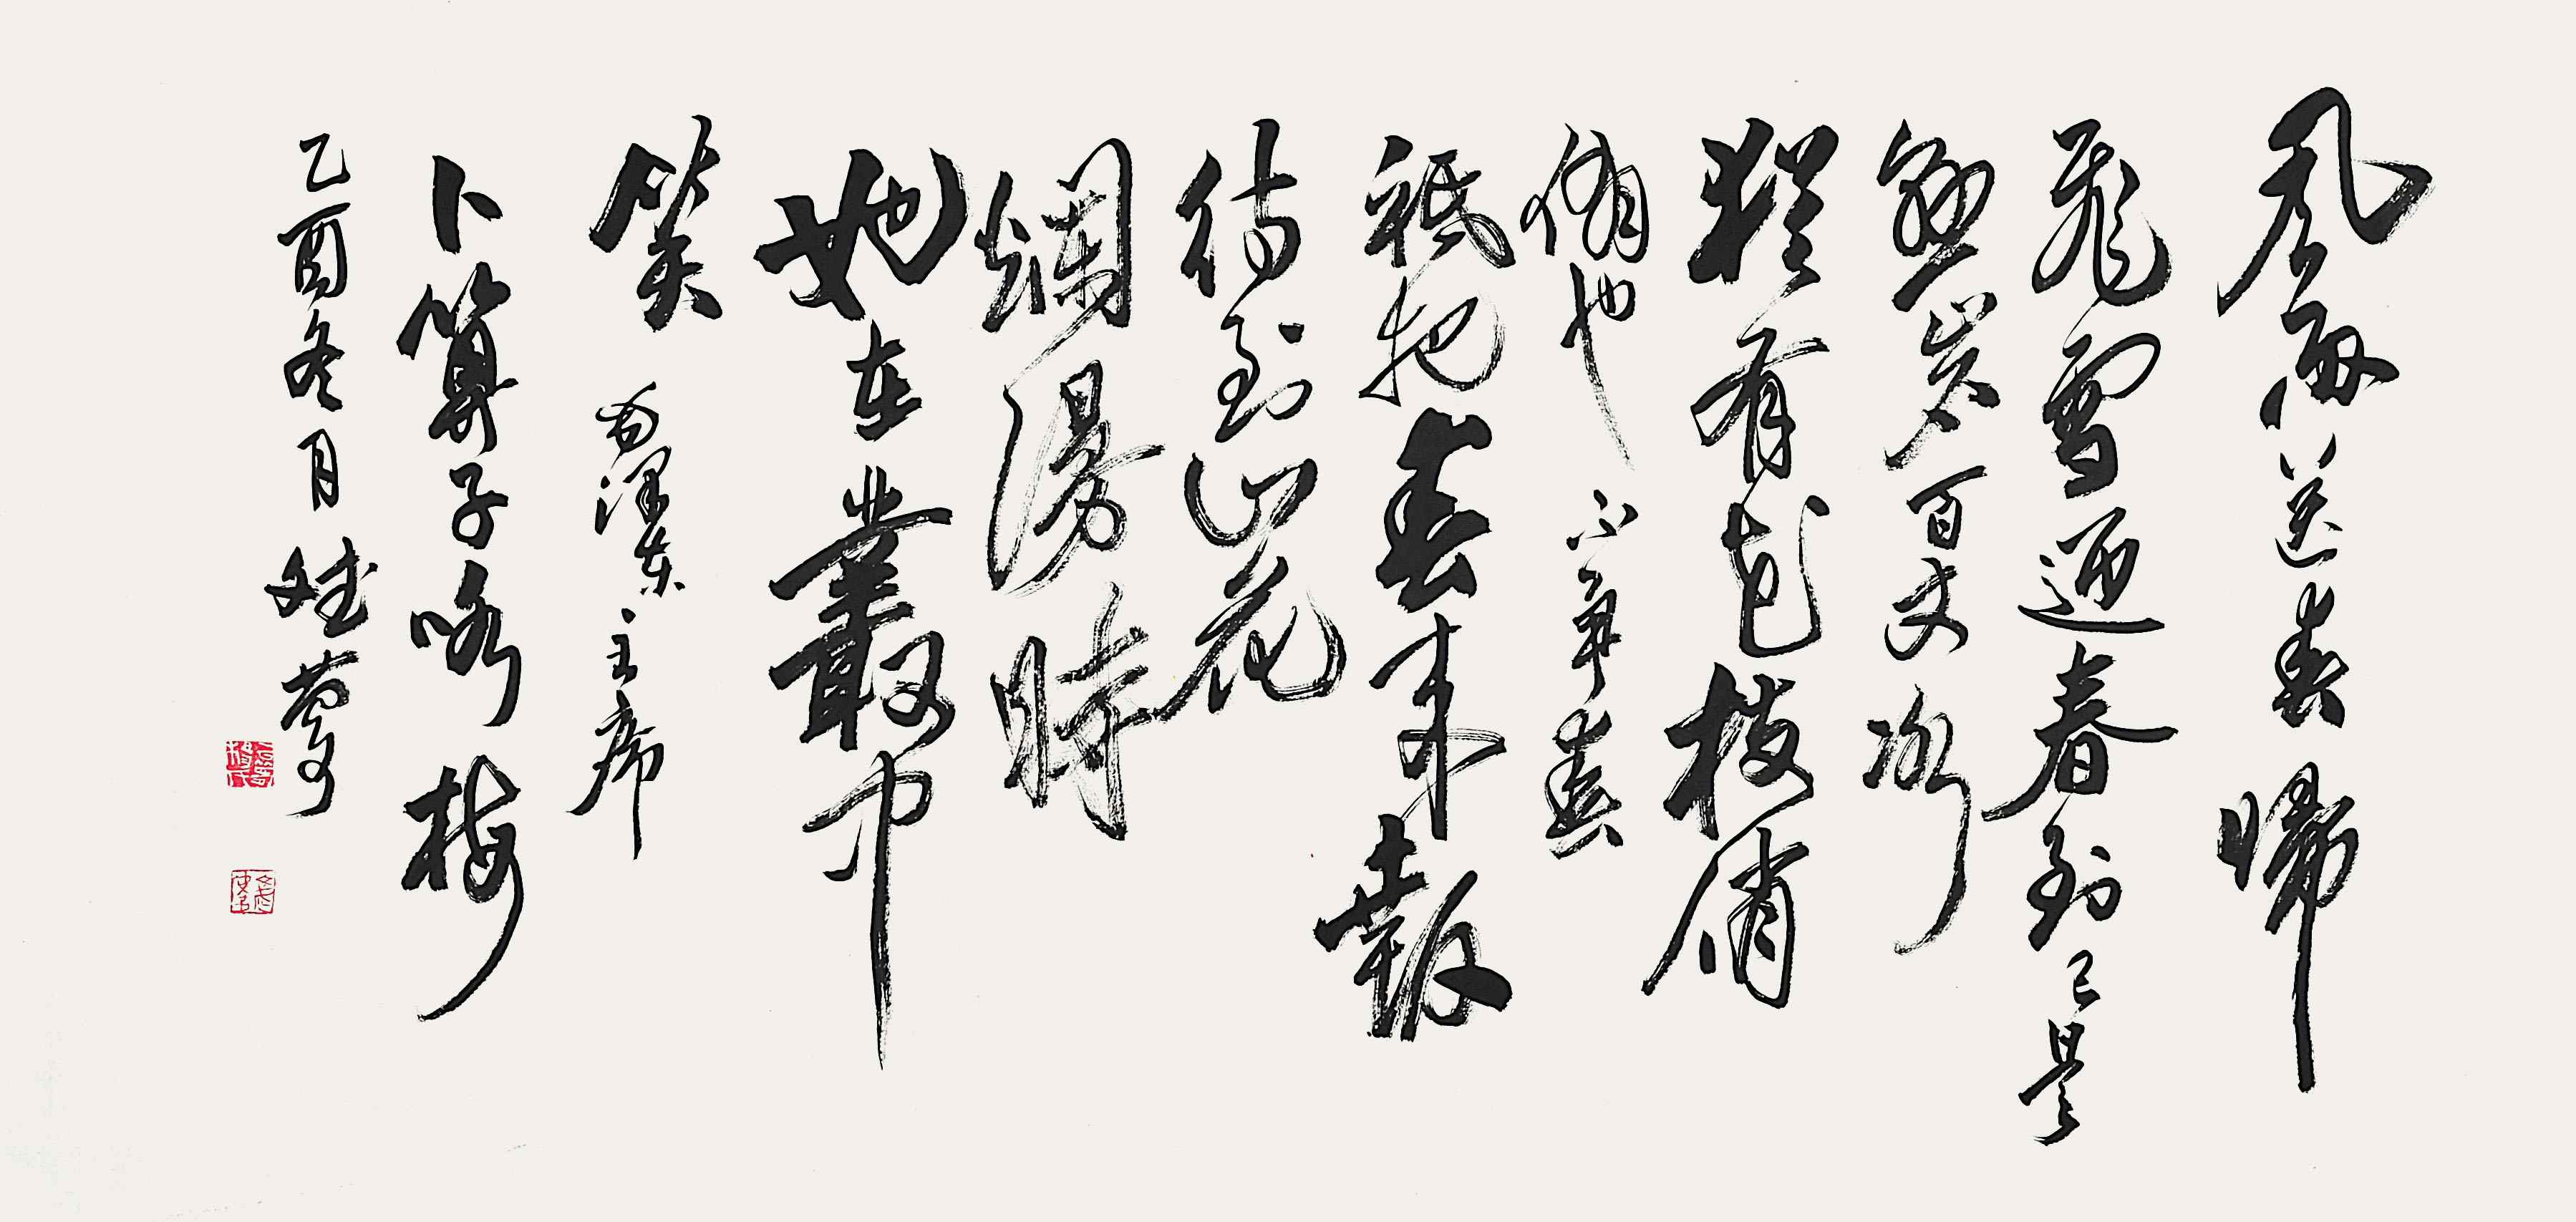 風雨送春歸
飛雪迎春到已是
懸崖百丈冰
猶有花枝俏
俏也不爭春
祇把春來報
待到山花
爛漫時
她在叢中
笑 毛泽东主席
卜算子咏梅
乙酉冬月